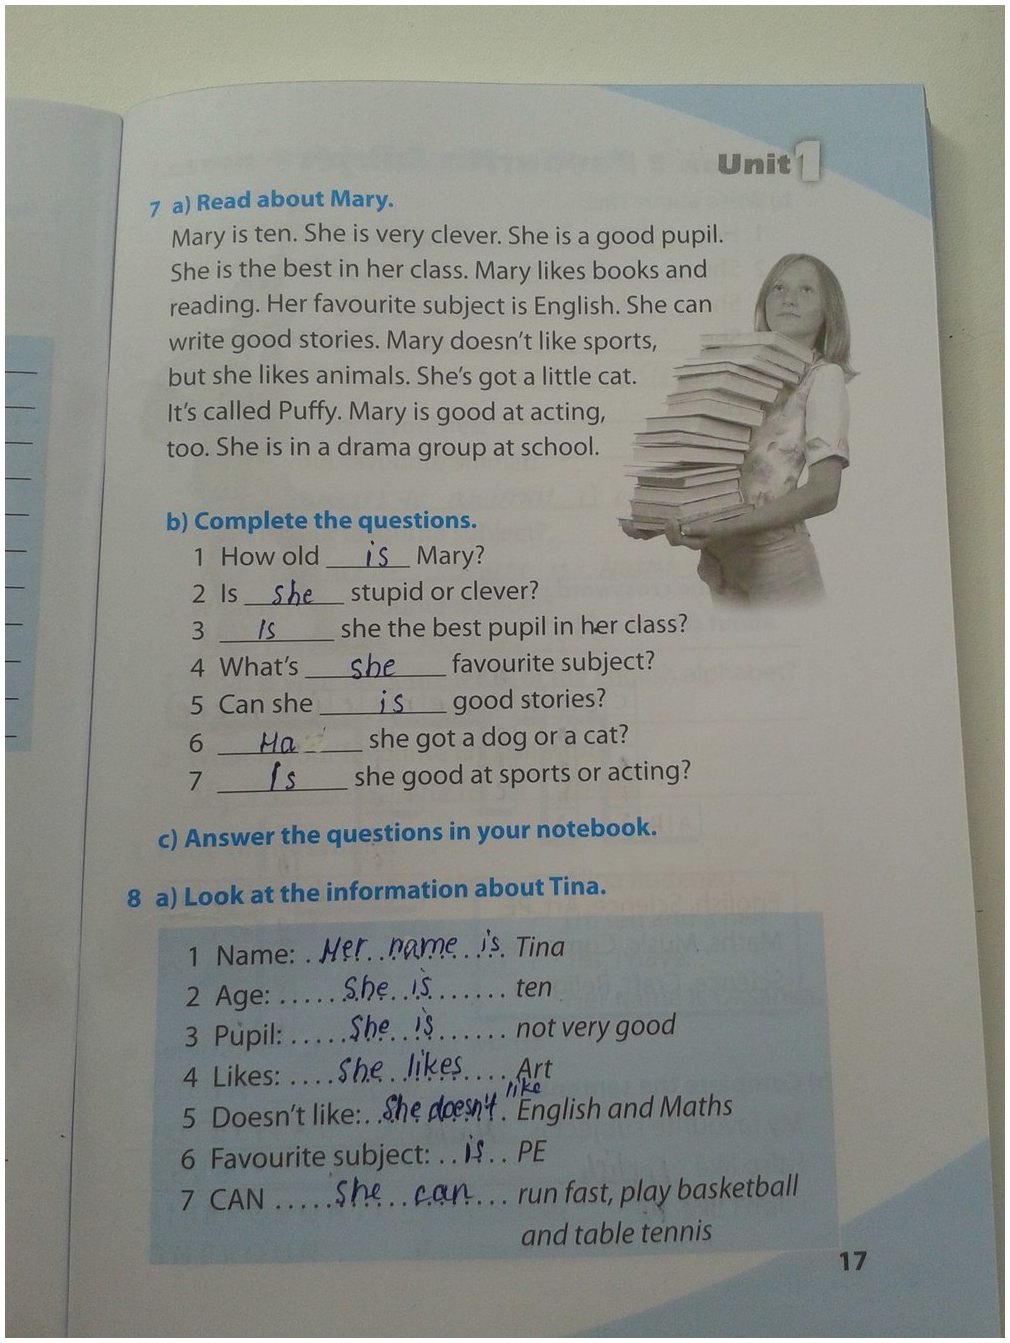 Unit 1
7 a) Read about Mary.
Mary is ten. She is very clever. She is a good pupil.
She is the best in her class. Mary likes books and
reading. Her favourite subject is English. She can
write good stories. Mary doesn't like sports,
but she likes animals. She's got a little cat.
It's called Puffy. Mary is good at acting,
too. She is in a drama group at school.
b) Complete the questions.
1 How old is Mary?
2 Is she stupid or clever?
3 Is she the best pupil in her class?
4 What's she favourite subject?
5 Can she is good stories?
6 Ha she got a dog or a cat?
7 Is she good at sports or acting?
c) Answer the questions in your notebook.
8 a) Look at the information about Tina.
1 Name: . Her name is. Tina
2 Age: ..... She is ....... ten
3 Pupil: ..... She is ...... not very good
4 Likes: .... She likes .... Art
5 Doesn't like: .. She doesn't like . English and Maths
6 Favourite subject: .. is .. PE
7 CAN ..... She can ... run fast, play basketball
and table tennis
17